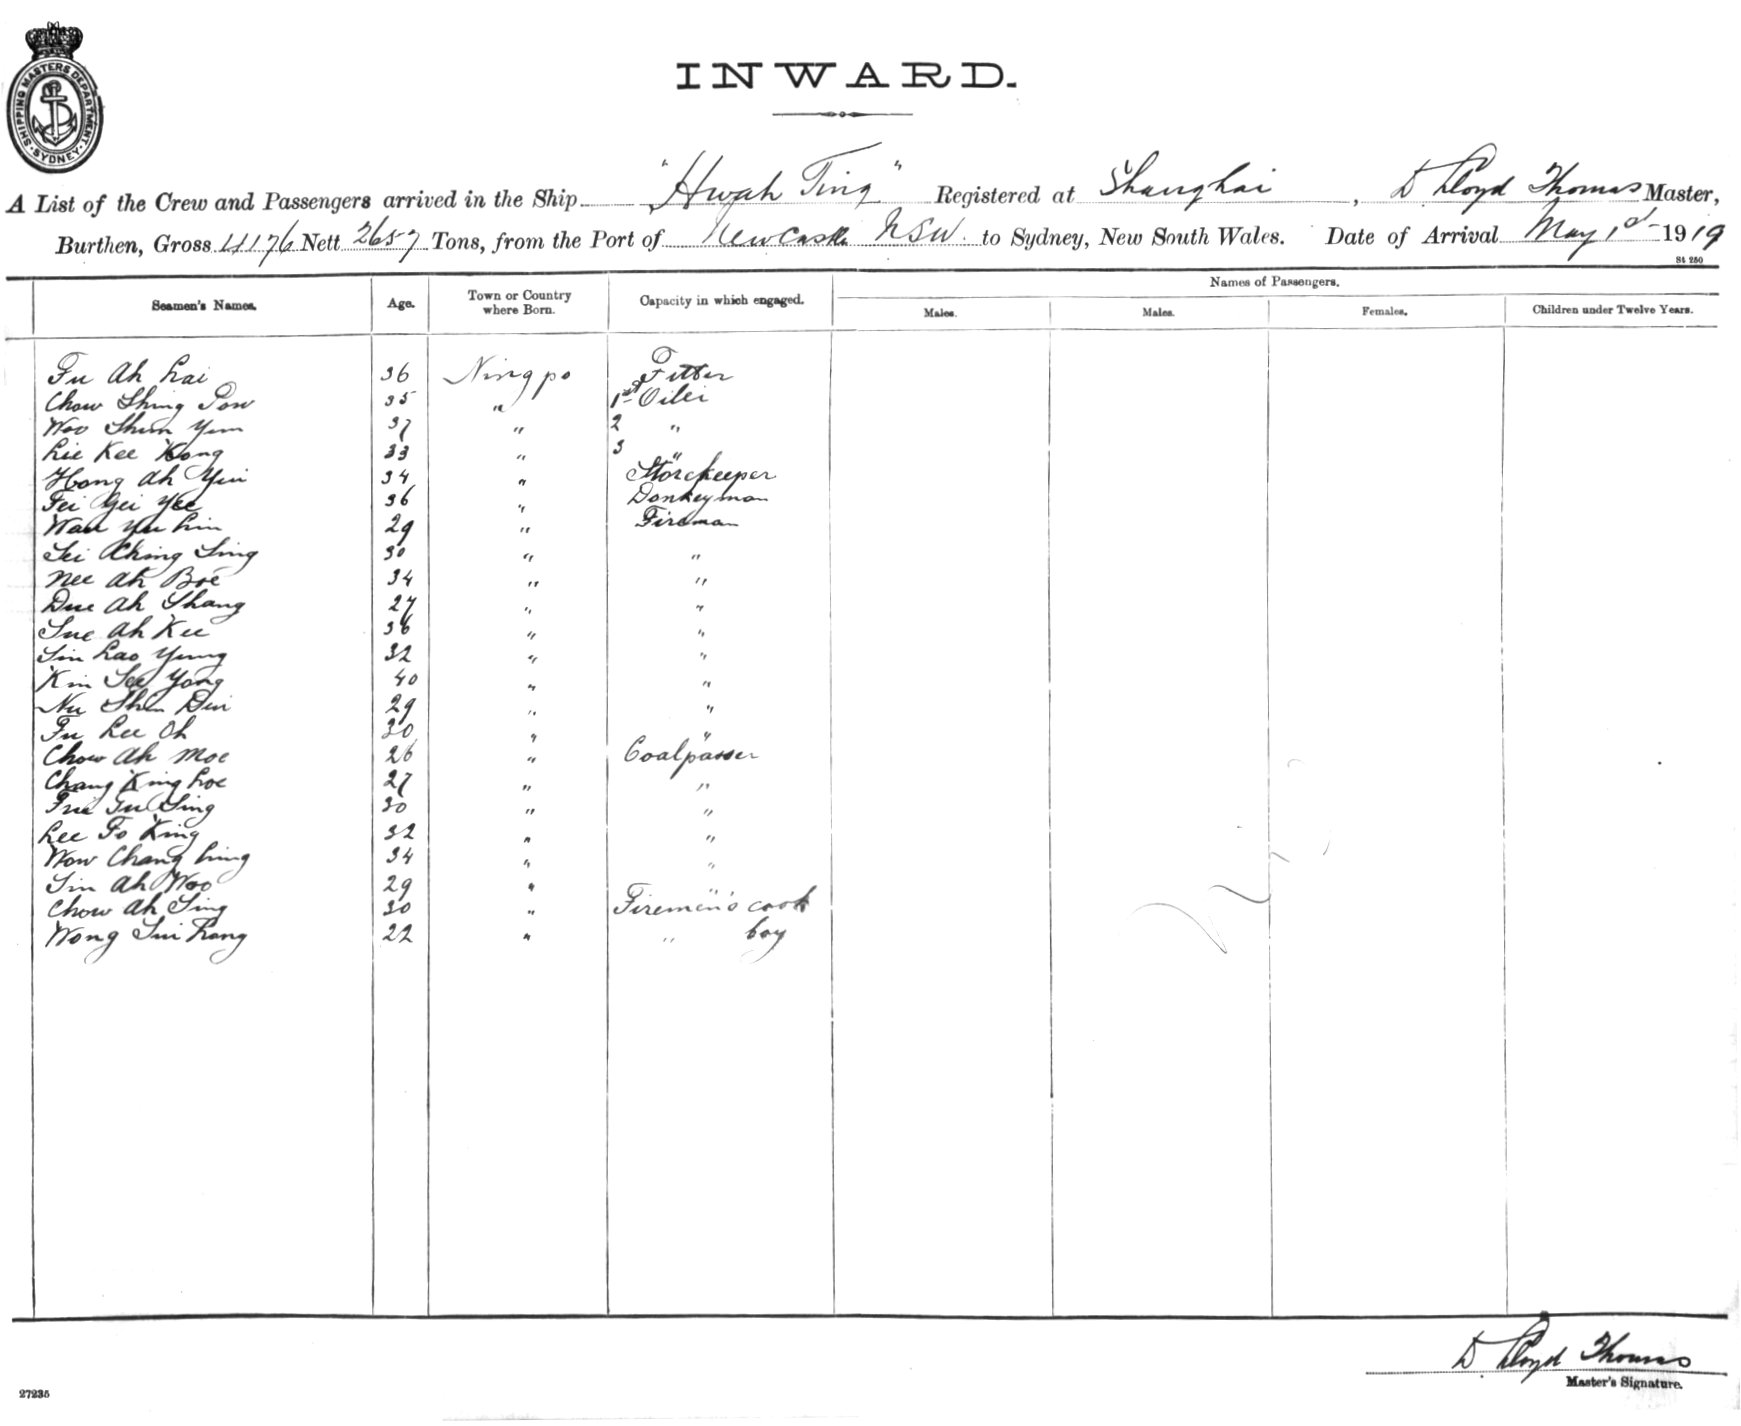 SHIPPING MASTERS DEPARTMENT. SYDNEY
INWARD.
A List of the Crew and Passengers arrived in the Ship "Hwah Ting" Registered at Shanghai, D Lloyd Thomas Master,
Burthen, Gross 4176 Nett 2657 Tons, from the Port of Newcastle NSW. to Sydney, New South Wales. Date of Arrival May 1st 1919
St 250
Seamen's Names. Age. Town or Country where Born. Capacity in which engaged. Names of Passengers.
Males. Males. Females. Children under Twelve Years.
Fu Ah Lai 36 Ningpo Fitter
Chow Shing Pow 35 " 1st Oiler
Woo Shun Yum 37 " 2 "
Lie Kee Kong 33 " 3 "
Hong Ah Yui 34 " Storekeeper
Fei Gei Yee 36 " Donkeyman
Wau Yu Lin 29 " Fireman
Sei Ching Sing 30 " "
Nee Ah Boe 34 " "
Due Ah Shang 27 " "
Sue Ah Kee 36 " "
Sin Lao Yung 32 " "
Kin See Yong 40 " "
Nu Shin Dui 29 " "
Fu Lee Oh 30 " "
Chow Ah Moe 26 " Coalpasser
Chang King Loe 27 " "
Fui Tu Sing 30 " "
Lee Fo King 32 " "
Wow Chang Ling 34 " "
Sin Ah Woo 29 " "
Chow Ah Sing 30 " Firemen's cook
Wong Sui Long 22 " " boy
D Lloyd Thomas
Master's Signature.
27235